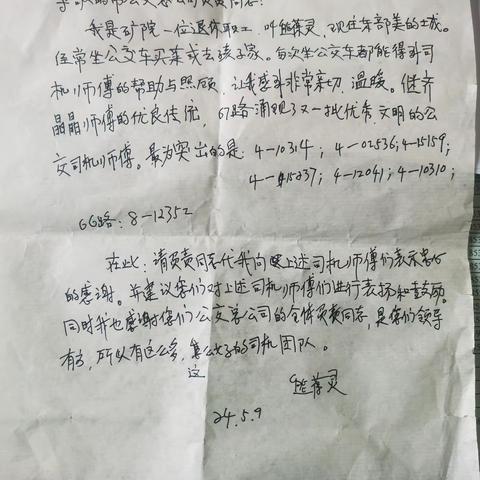 我是矿院一位退休职工,叫熊荐灵,现住东部美的土城。
经常坐公交车买菜或去孩子家。每次坐公交车都能得到司
机师傅的帮助与照顾,让我感到非常亲切、温暖。继齐
晶晶师傅的优良传统,67路涌现了又一批优秀、文明的公
交司机师傅。最为突出的是:4-10314;4-02536;4-15159;
4-15237;4-12041;4-10310;
66路:8-12352
在此:请负责同志代我向上述司机师傅们表示衷心
的感谢。并建议您们对上述司机师傅们进行表扬和鼓励。
同时我也感谢您们公交总公司的全体负责同志,是您们领导
有方,所以有这么多,这么好的司机团队。
熊荐灵
24.5.9